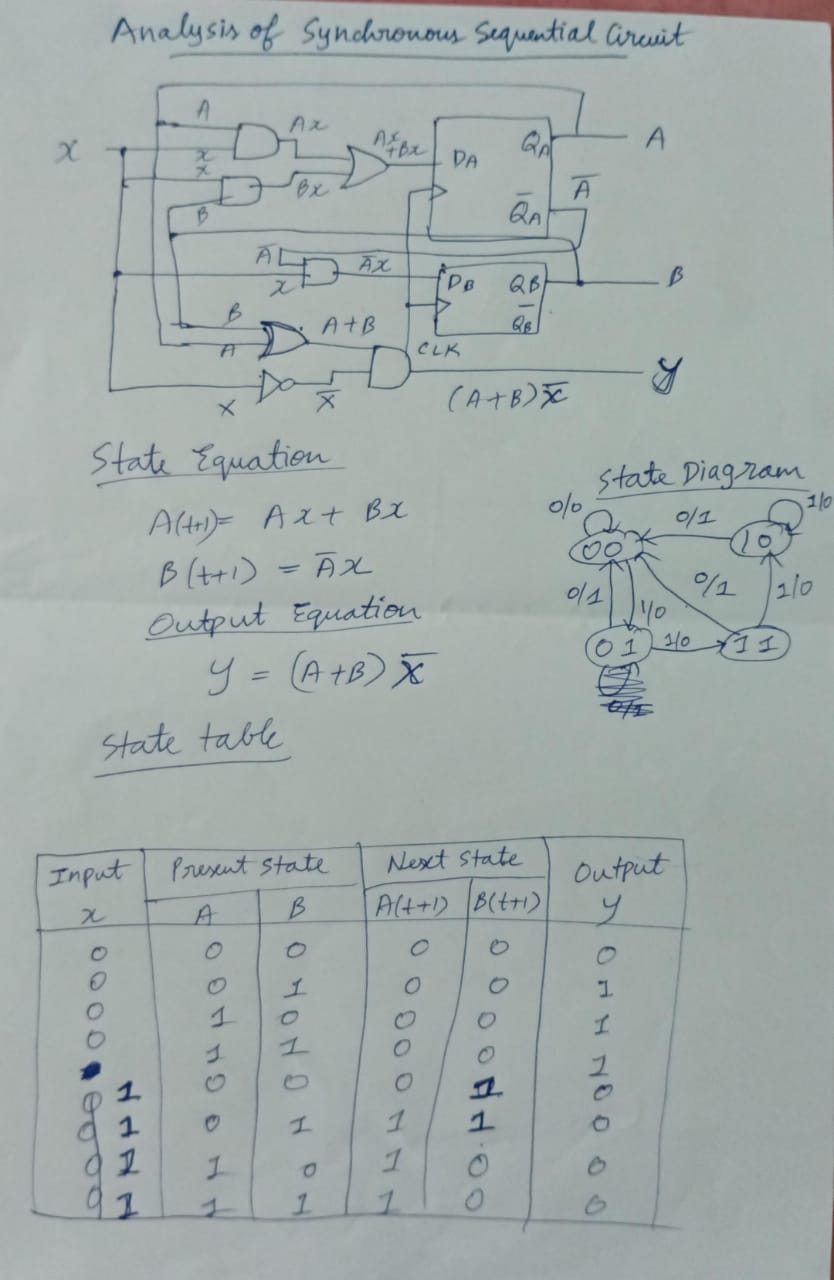 Analysis of Synchronous Sequential Circuit
A
Ax
x
x
x
Ax
+Bx
DA
QA
A
Bx
B
Q̅A
A̅
A̅
A̅x
x
DB
QB
B
Q̅B
B
A
A+B
CLK
x
x̅
(A+B)x̅
y
State Equation
A(t+1)= Ax + Bx
B(t+1) = A̅x
Output Equation
y = (A+B) x̅
State Diagram
0/0
00
0/1
10
1/0
0/1
1/0
0/1
1/0
01
1/0
11
State table
Input Present State Next State Output
x A B A(t+1) B(t+1) y
0 0 0 0 0 0
0 0 1 0 0 1
0 1 0 0 0 1
0 1 1 0 0 1
1 0 0 0 1 0
1 0 1 1 1 0
1 1 0 1 0 0
1 1 1 1 0 0